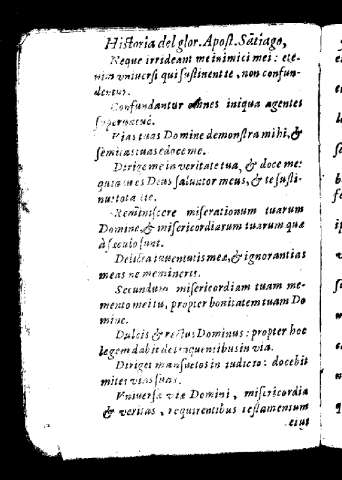 Historia del glor. Apost. Sãtiago,
Neque irrideant me inimici mei: ete-
nim vniuersi qui sustinent te, non confun-
dentur.
Confundantur omnes iniqua agentes
superuacuè.
Vias tuas Domine demonstra mihi, &
semitas tuas edoce me.
Dirige me in veritate tua, & doce me:
quia tu es Deus saluator meus, & te susti-
nui tota die.
Reminiscere miserationum tuarum
Domine, & misericordiarum tuarum quæ
à sæculo sunt.
Delicta iuuentutis meæ, & ignorantias
meas ne memineris.
Secundum misericordiam tuam me-
mento mei tu, propter bonitatem tuam Do
mine.
Dulcis & rectus Dominus: propter hoc
legem dabit delinquentibus in via.
Diriget mansuetos in iudicio: docebit
mites vias suas.
Vniuersæ viæ Domini, misericordia
& veritas, requirentibus testamentum
eius